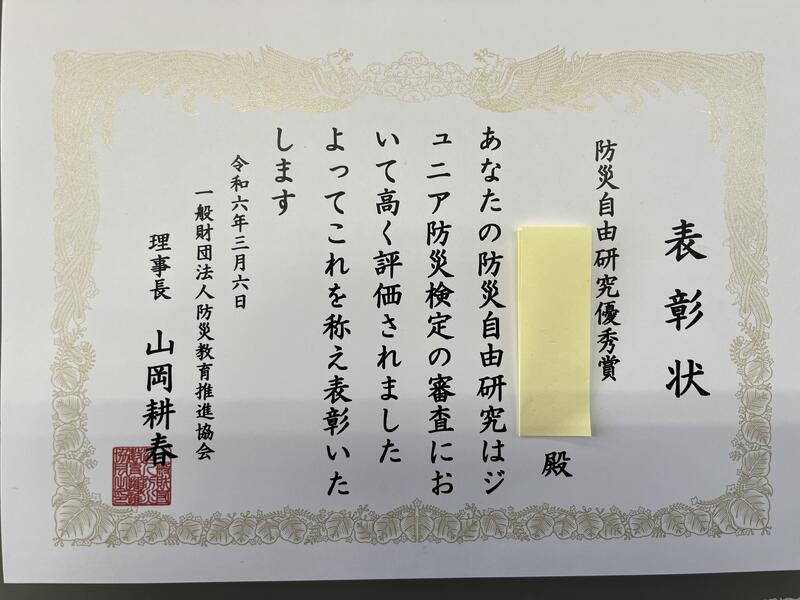 表彰状
防災自由研究優秀賞
殿
あなたの防災自由研究はジ
ュニア防災検定の審査にお
いて高く評価されました
よってこれを称え表彰いた
します
令和六年三月六日
一般財団法人防災教育推進協会
理事長 山岡耕春